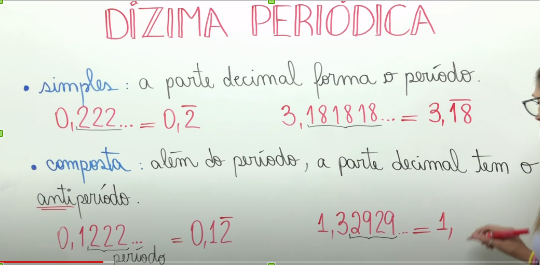 DÍZIMA PERIÓDICA
• simples : a parte decimal forma o período.
0,222... = 0,2̅ 3,181818... = 3,1̅8̅
• composta : além do período, a parte decimal tem o
antiperíodo.
0,1222... = 0,12̅ 1,32929... = 1,
período